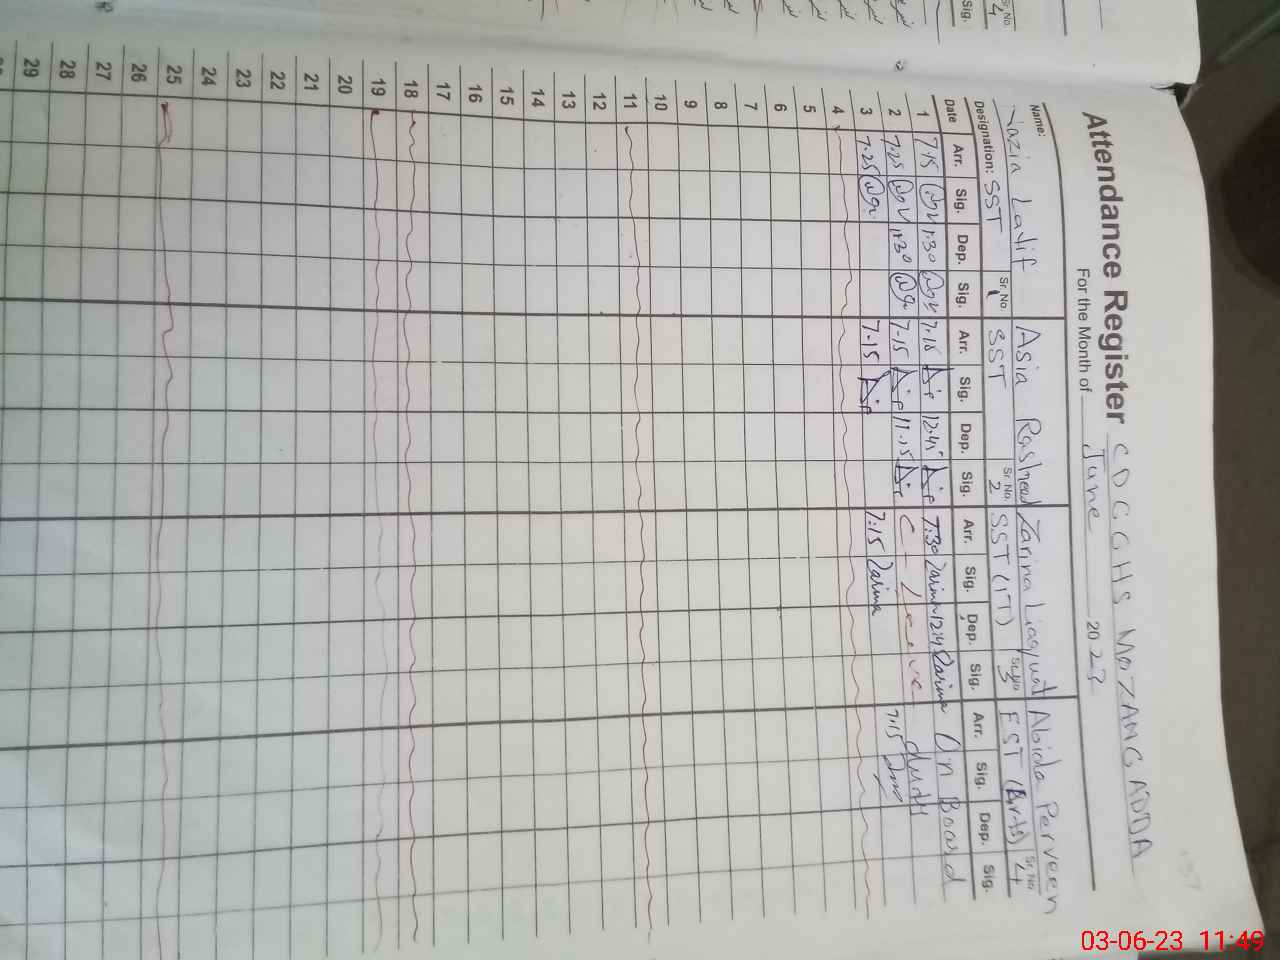 Attendance Register CDGGHS MOZANG ADDA
For the Month of June 2023
Name: Nazia Latif Asia Rasheed Zarina Liaquat Abida Perveen
Designation: SST Sr.No. 1 SST Sr.No. 2 SST (IT) Sr.No. 3 EST (Arts) Sr.No. 4
Date Arr. Sig. Dep. Sig. Arr. Sig. Dep. Sig. Arr. Sig. Dep. Sig. Arr. Sig. Dep. Sig.
1 7.15 1.30 7.15 12.45 7:30 Zarina Zarina On Board
2 7.25 1.30 7-15 11.15 C-Leave duty
3 7.25 7.15 7:15 Zarina 7.15
4
5
6
7
8
9
10
11
12
13
14
15
16
17
18
19
20
21
22
23
24
25
26
27
28
29
Sr.No.
4
Sig.
03-06-23 11:49